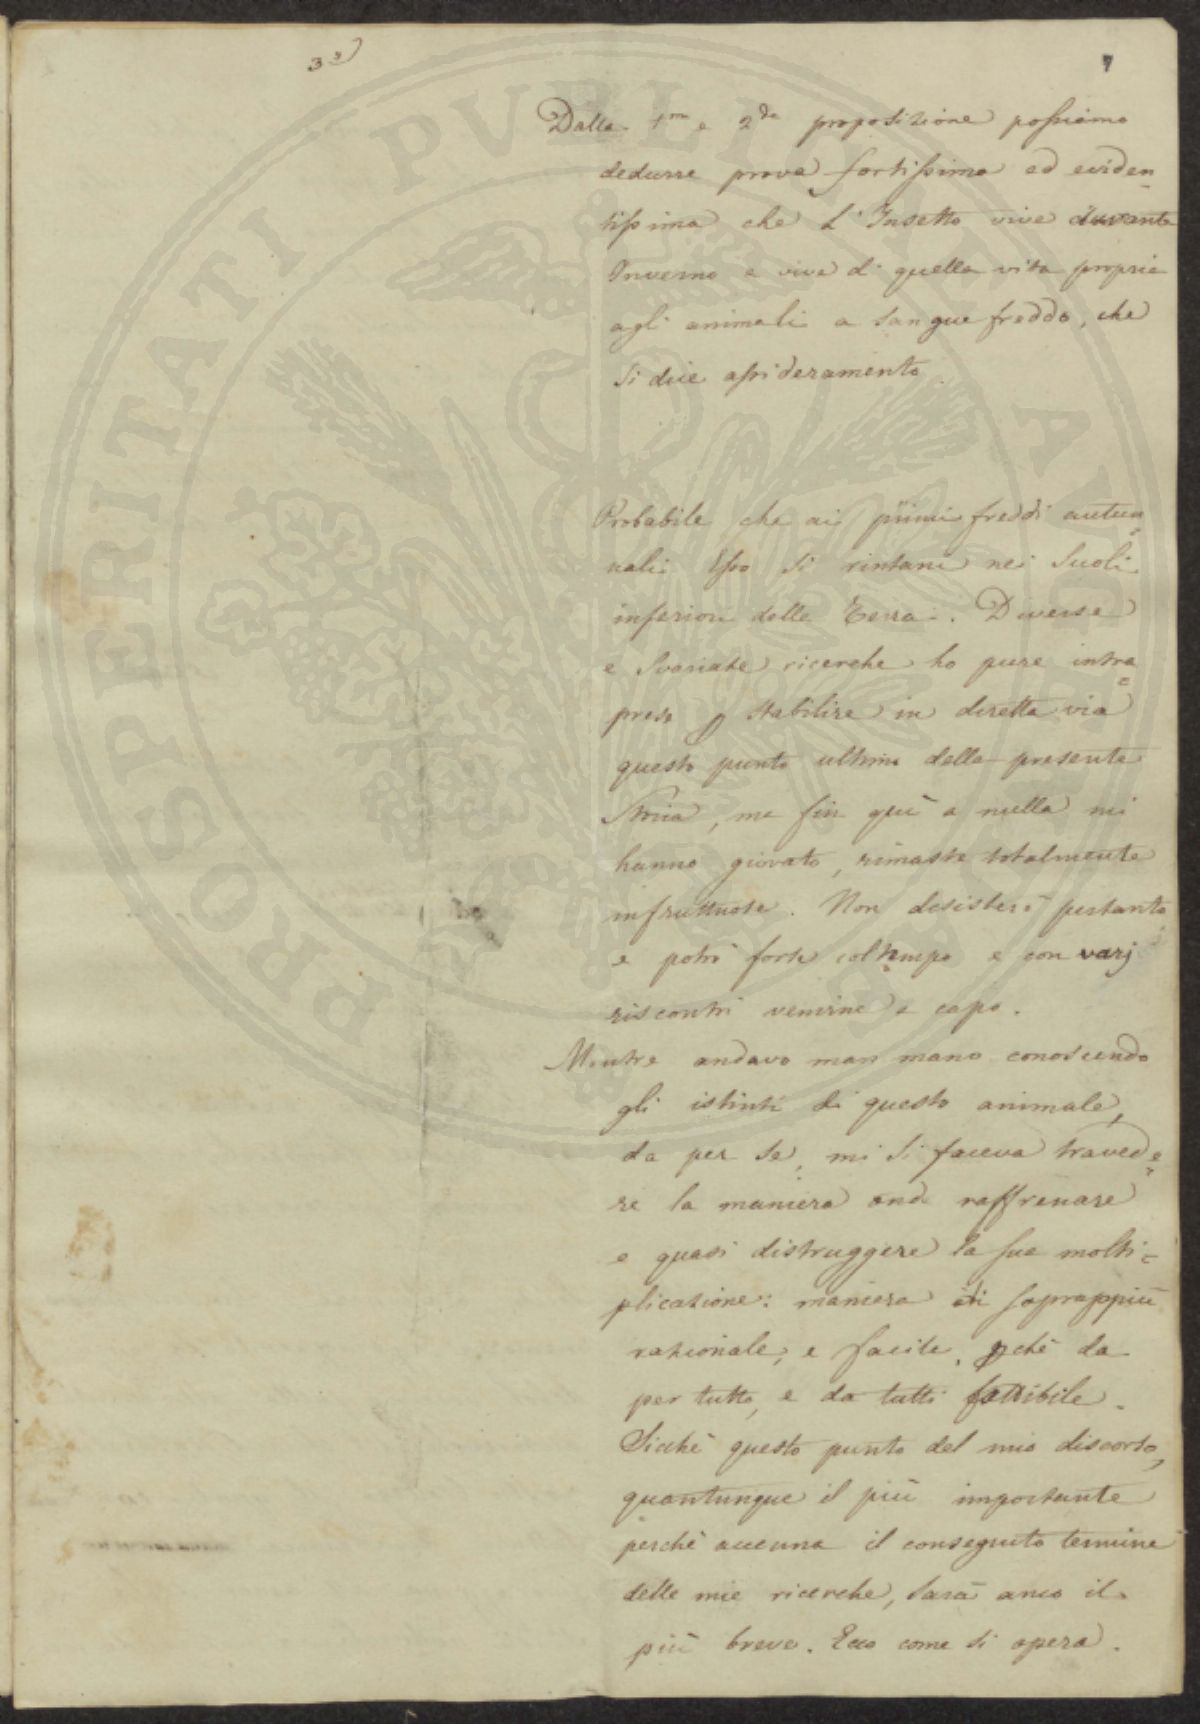 3 3)
7
Dalla 1ma e 2da proposizione possiamo
dedurre prova fortissima ed eviden=
tissima che L'Insetto vive durante
Inverno e vive di quella vita propria
agli animali a sangue freddo, che
si dice assideramento
Probabile che ai primi freddi autun=
nali Esso si rintani nei suoli
inferiori della Terra. Diverse
e svariate ricerche ho pure intra=
preso p stabilire in diretta via
questo punto ultimo della presente
Storia, ma fin quì a nulla mi
hanno giovato, rimaste totalmente
infruttuose. Non desisterò pertanto
e potrò forse col tempo e con varj
riscontri venirne a capo.
Mentre andavo man mano conoscendo
gli istinti di questo animale,
da per se, mi si faceva travede=
re la maniera onde raffrenare
e quasi distruggere la sua molti=
plicazione: maniera di soprappiù
razionale, e facile, pchè da
per tutto, e da tutti fattibile.
Sicchè questo punto del mio discorso,
quantunque il più importante
perchè accenna il conseguito termine
delle mie ricerche, sarà anco il
più breve. Ecco come si opera.
PROSPERITATI PUBLICAE AUGENDAE